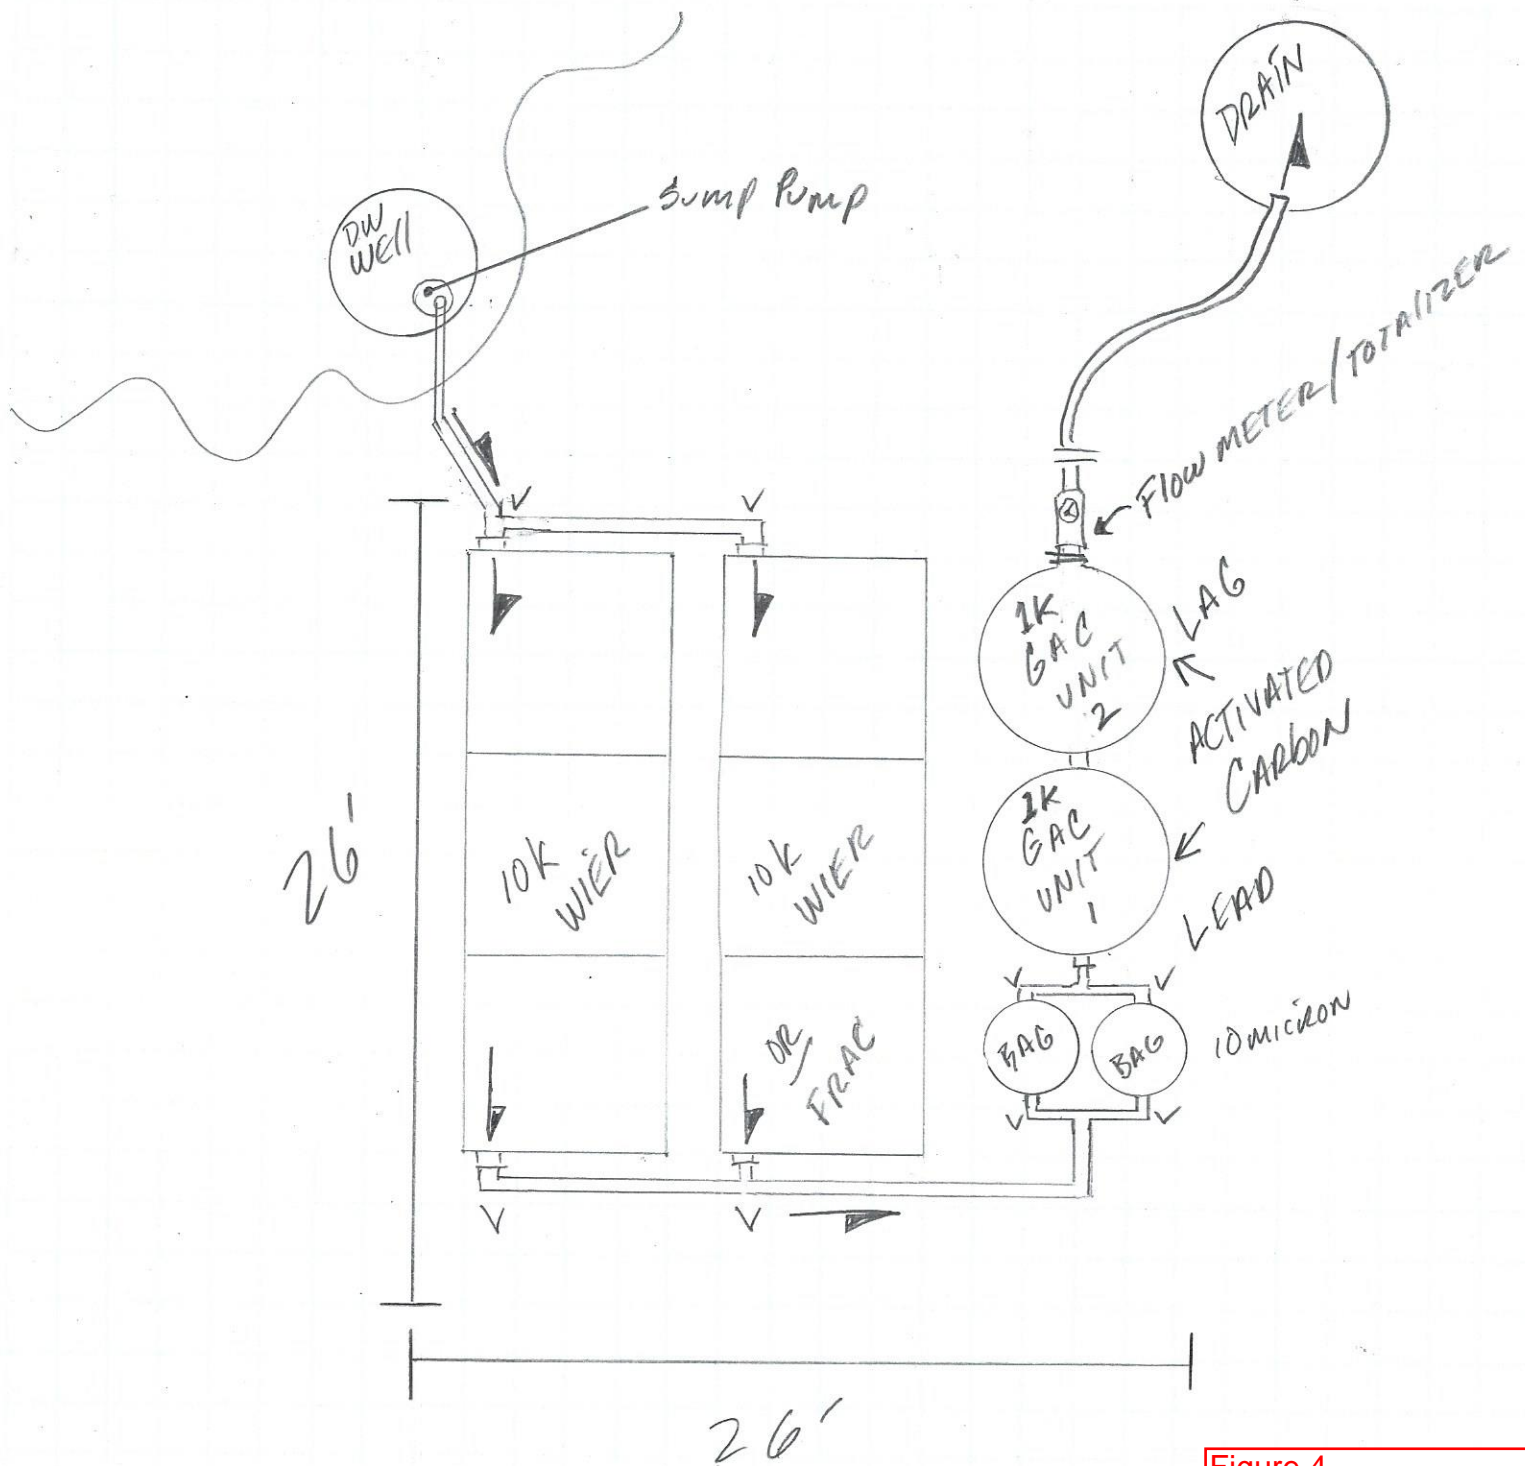 DRAIN
DW
WEll
Sump Pump
Flow METER/TOTAlIZER
V
V
1K
GAC
UNIT
2
LAG
ACTIVATED
CARbON
1K
GAC
UNIT
1
LEAD
26'
10K
WIER
10K
WIER
OR
FRAC
V
V
BAG
BAG
10 MICRON
V
V
V
V
26'
Figure 4